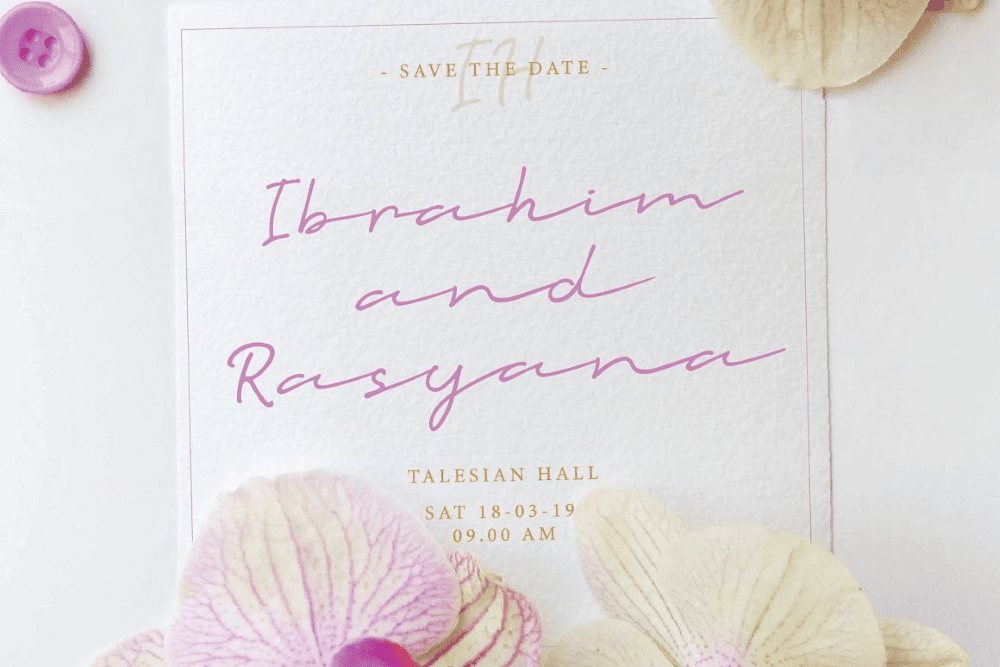 IH
- SAVE THE DATE -
Ibrahim
and
Rasyana
TALESIAN HALL
SAT 18-03-19
09.00 AM